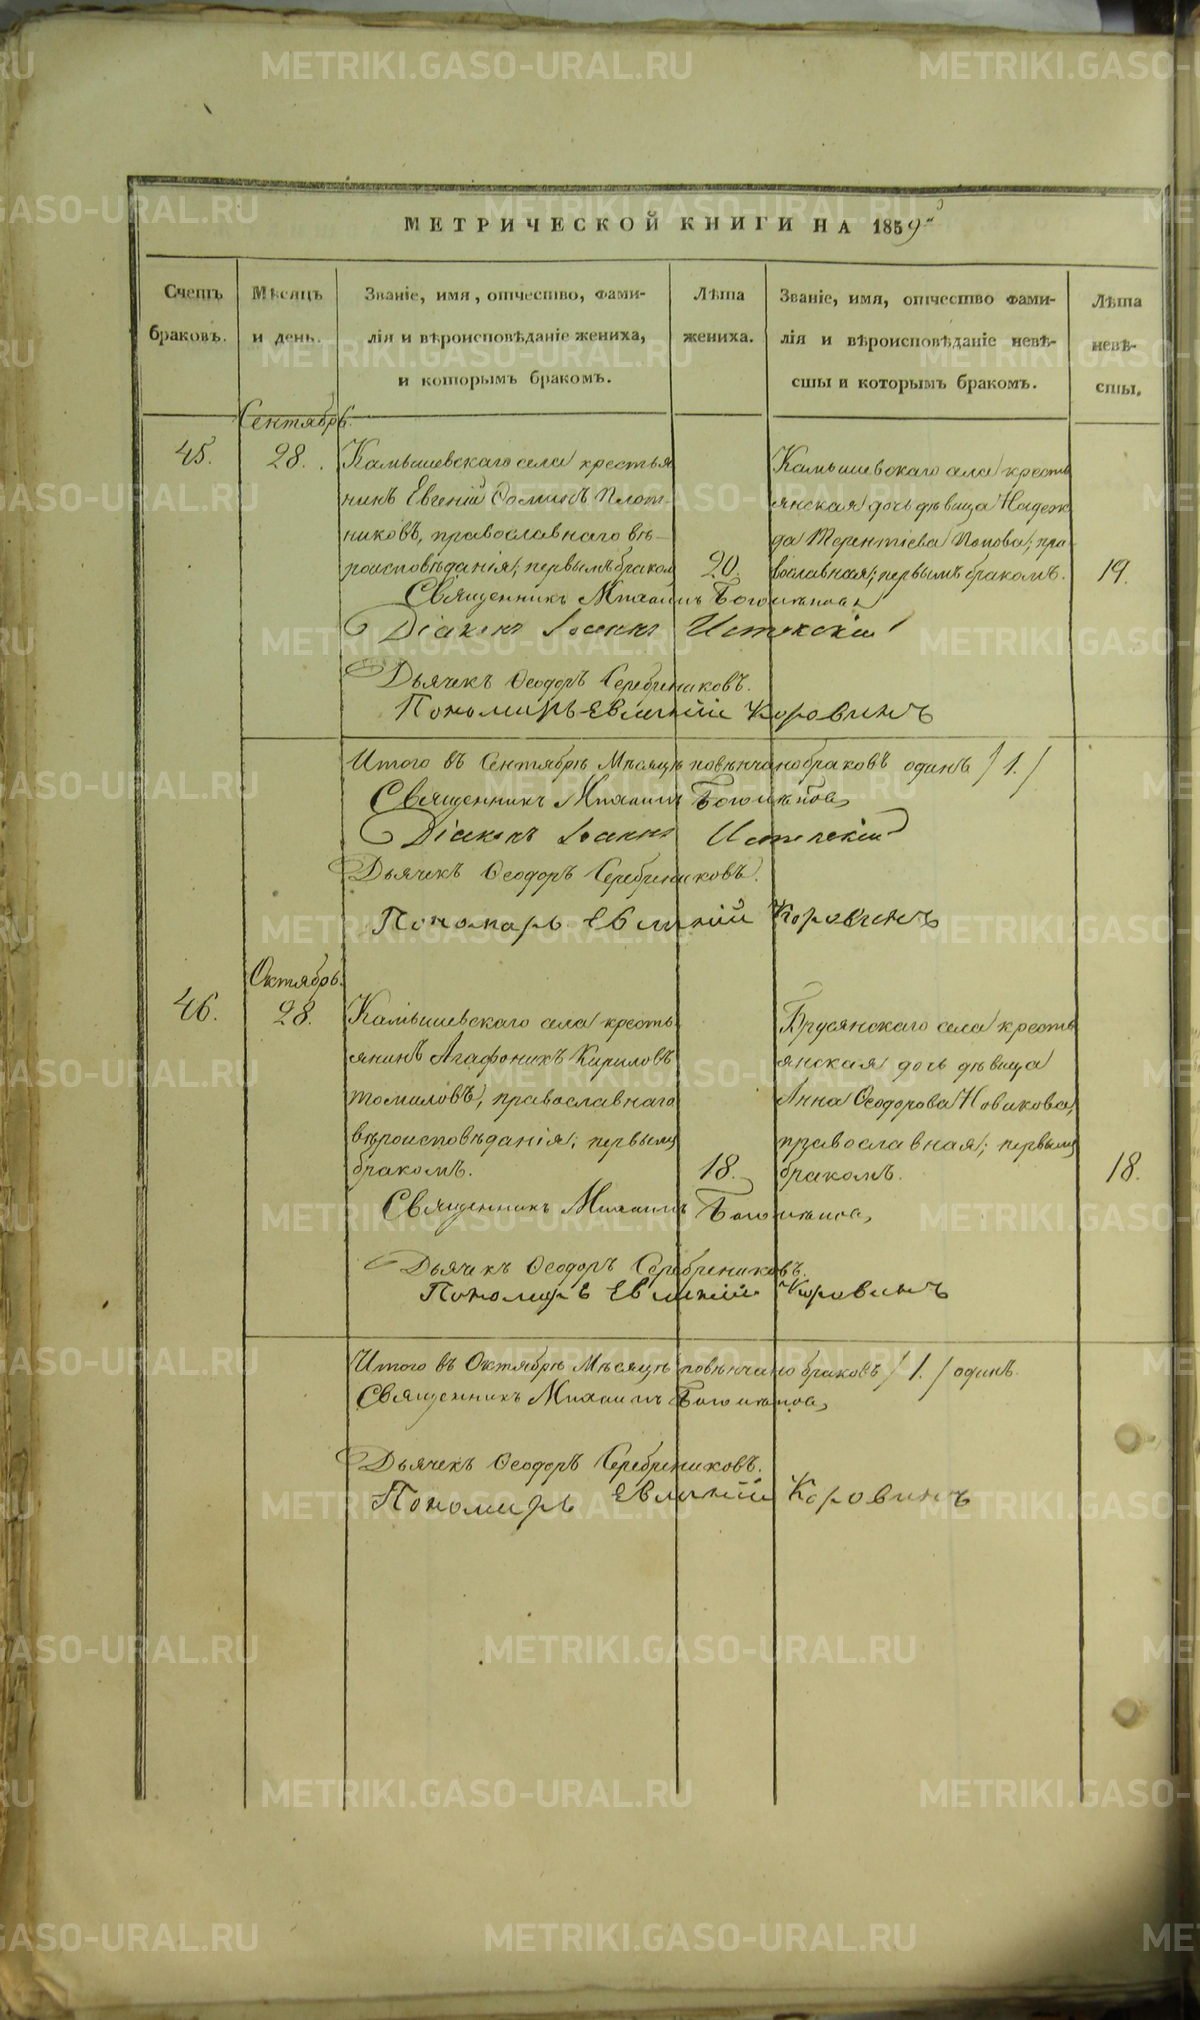 МЕТРИЧЕСКОЙ КНИГИ НА 1859й
Счетъ браковъ.
Мѣсяцъ и день.
Званіе, имя, отчество, фами-
лія и вѣроисповѣданіе жениха,
и которымъ бракомъ.
Лѣта
жениха.
Званіе, имя, отчество фами-
лія и вѣроисповѣданіе невѣ-
сты и которымъ бракомъ.
Лѣта
невѣ-
сты.
Сентябрь.
45.
28.
Камышевскаго села крестья
нинъ Евгений Ѳоминъ Плот
никовъ, православнаго вѣ-
роисповѣданія; первымъ бракомъ
20.
Камышевскаго села кресть
янская дочь дѣвица Надеж
да Терентіева Попова; пра
вославная; первымъ бракомъ.
19.
Священникъ Михаилъ
Діаконъ Іоаннъ
Дьячекъ Ѳеодоръ Серебрениковъ.
Пономарь Евгений Коровинъ
Итого въ Сентябрѣ Мѣсяцѣ повѣнчано браковъ одинъ / 1. /
Священникъ Михаилъ
Діаконъ Іоаннъ
Дьячекъ Ѳеодоръ Серебрениковъ.
Пономарь Коровинъ
Октябрь.
46.
28.
Камышевскаго села кресть
янинъ Агафоникъ Кириловъ
Томиловъ, православнаго
вѣроисповѣданія; первымъ
бракомъ.
18.
Брусянскаго села кресть
янская дочь дѣвица
Анна Ѳеодорова Новикова,
православная; первымъ
бракомъ.
18.
Священникъ Михаилъ
Дьячекъ Ѳеодоръ Серебрениковъ.
Пономарь Коровинъ
Итого въ Октябрѣ Мѣсяцѣ повѣнчано браковъ / 1. / одинъ.
Священникъ Михаилъ
Дьячекъ Ѳеодоръ Серебрениковъ.
Пономарь Коровинъ
METRIKI.GASO-URAL.RU